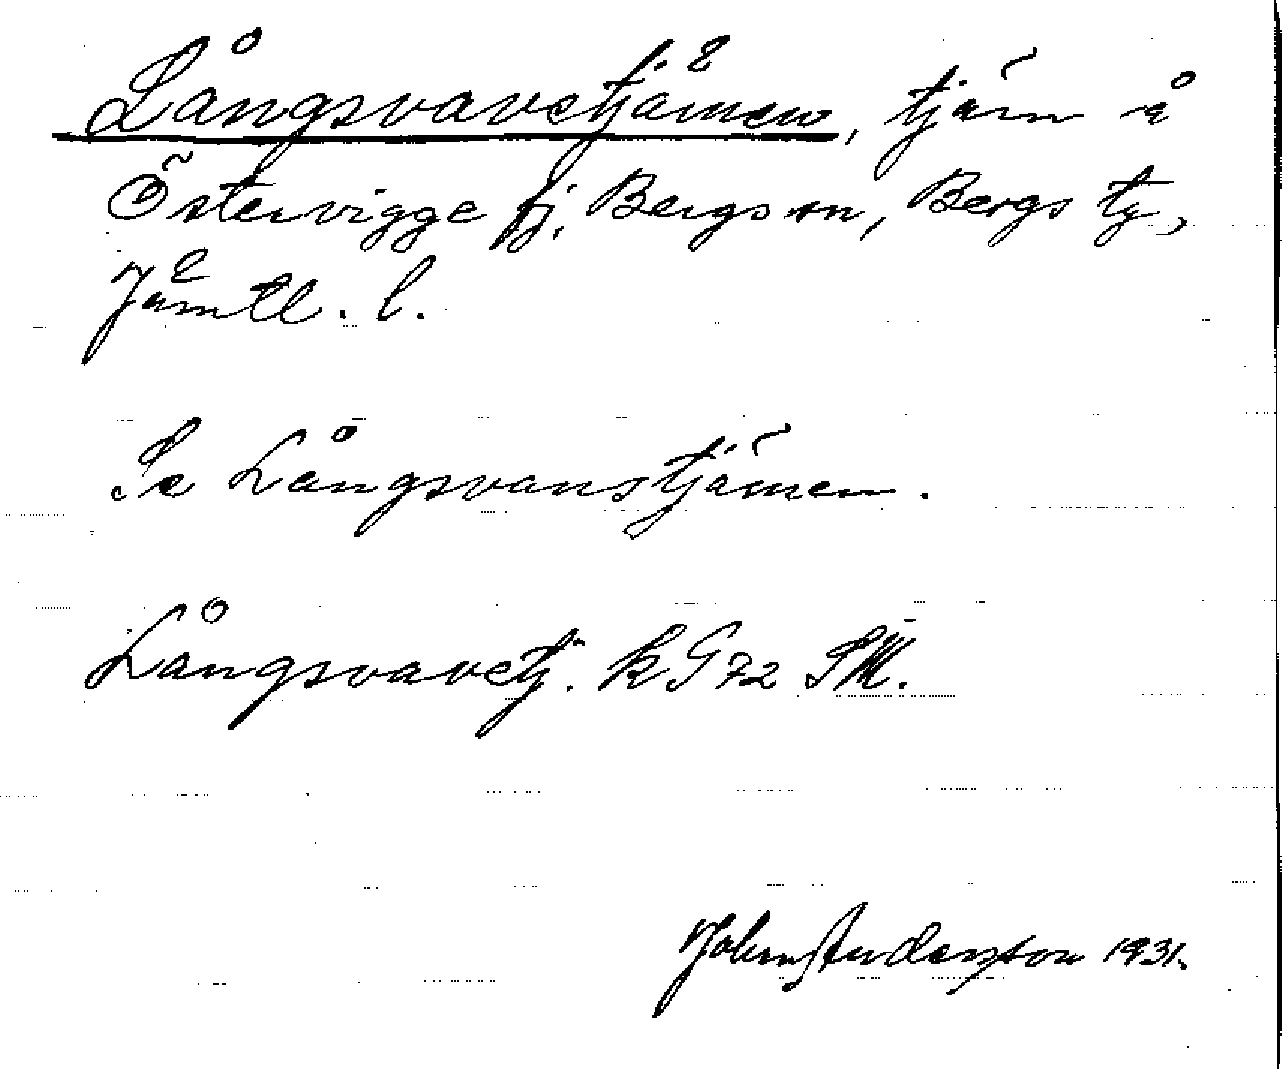 Långsvavetjärnen, tjärn å
Östervigge fj, Bergs sn, Bergs tg,
Jämtl. l.
Se Långsvanstjärnen.
Långsvavetj. k G 72 SM.
John Andersson 1931.